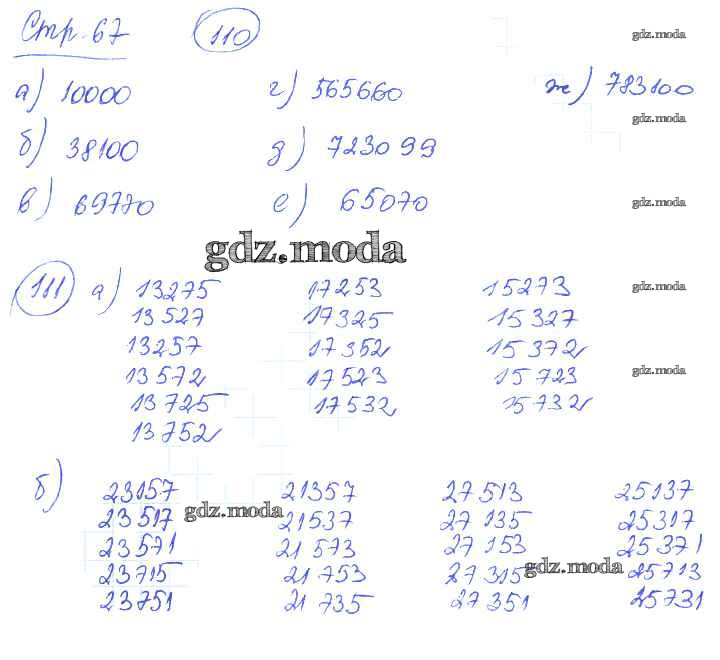 Стр. 67 110 gdz.moda
а) 10000 г) 565660 ж) 783100
gdz.moda
б) 38100 д) 723099
в) 69770 е) 65070 gdz.moda
gdz.moda
111 а) 13275 17253 15273 gdz.moda
13527 17325 15327
13257 17352 15372
13572 17523 15723 gdz.moda
13725 17532 15732
13752
б) 23157 21357 27513 25137
23517 gdz.moda 21537 27135 25317
23571 21573 27153 25371
23715 21753 27315 gdz.moda 25713
23751 21735 27351 25731